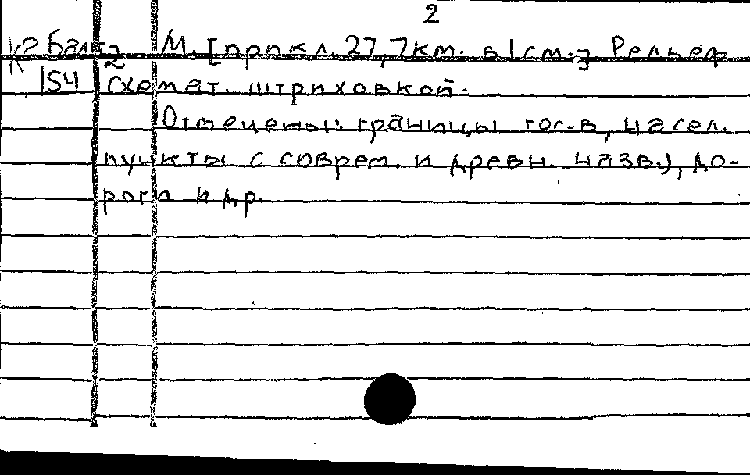 2
К2 Балт
2
К
154
М. [прибл. 27,7км. в 1см.] Рельеф
схемат. штриховкой.
Отмечены: границы гос-в, насел.
пункты с соврем. и древн. назв.), до-
роги и др.